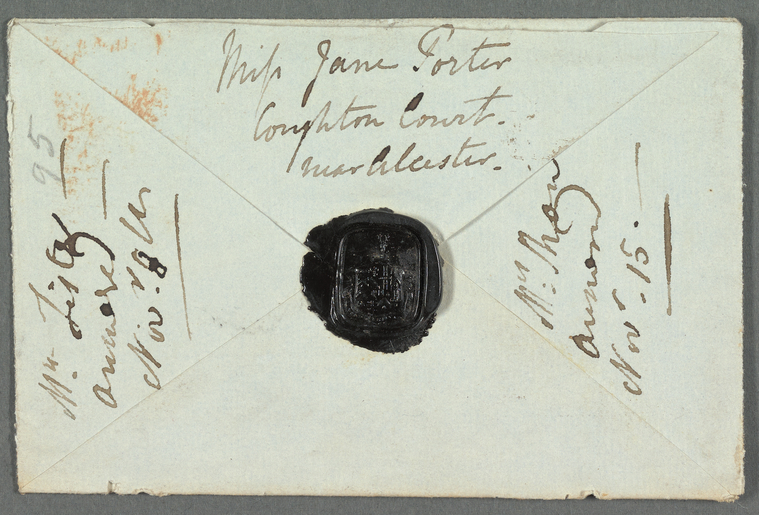 Miss Jane Porter
Coughton Court.
near Alcester.
95
Mrs.
answered
Novr. 8th
Mrs. Shaw
answered
Novr. 15.